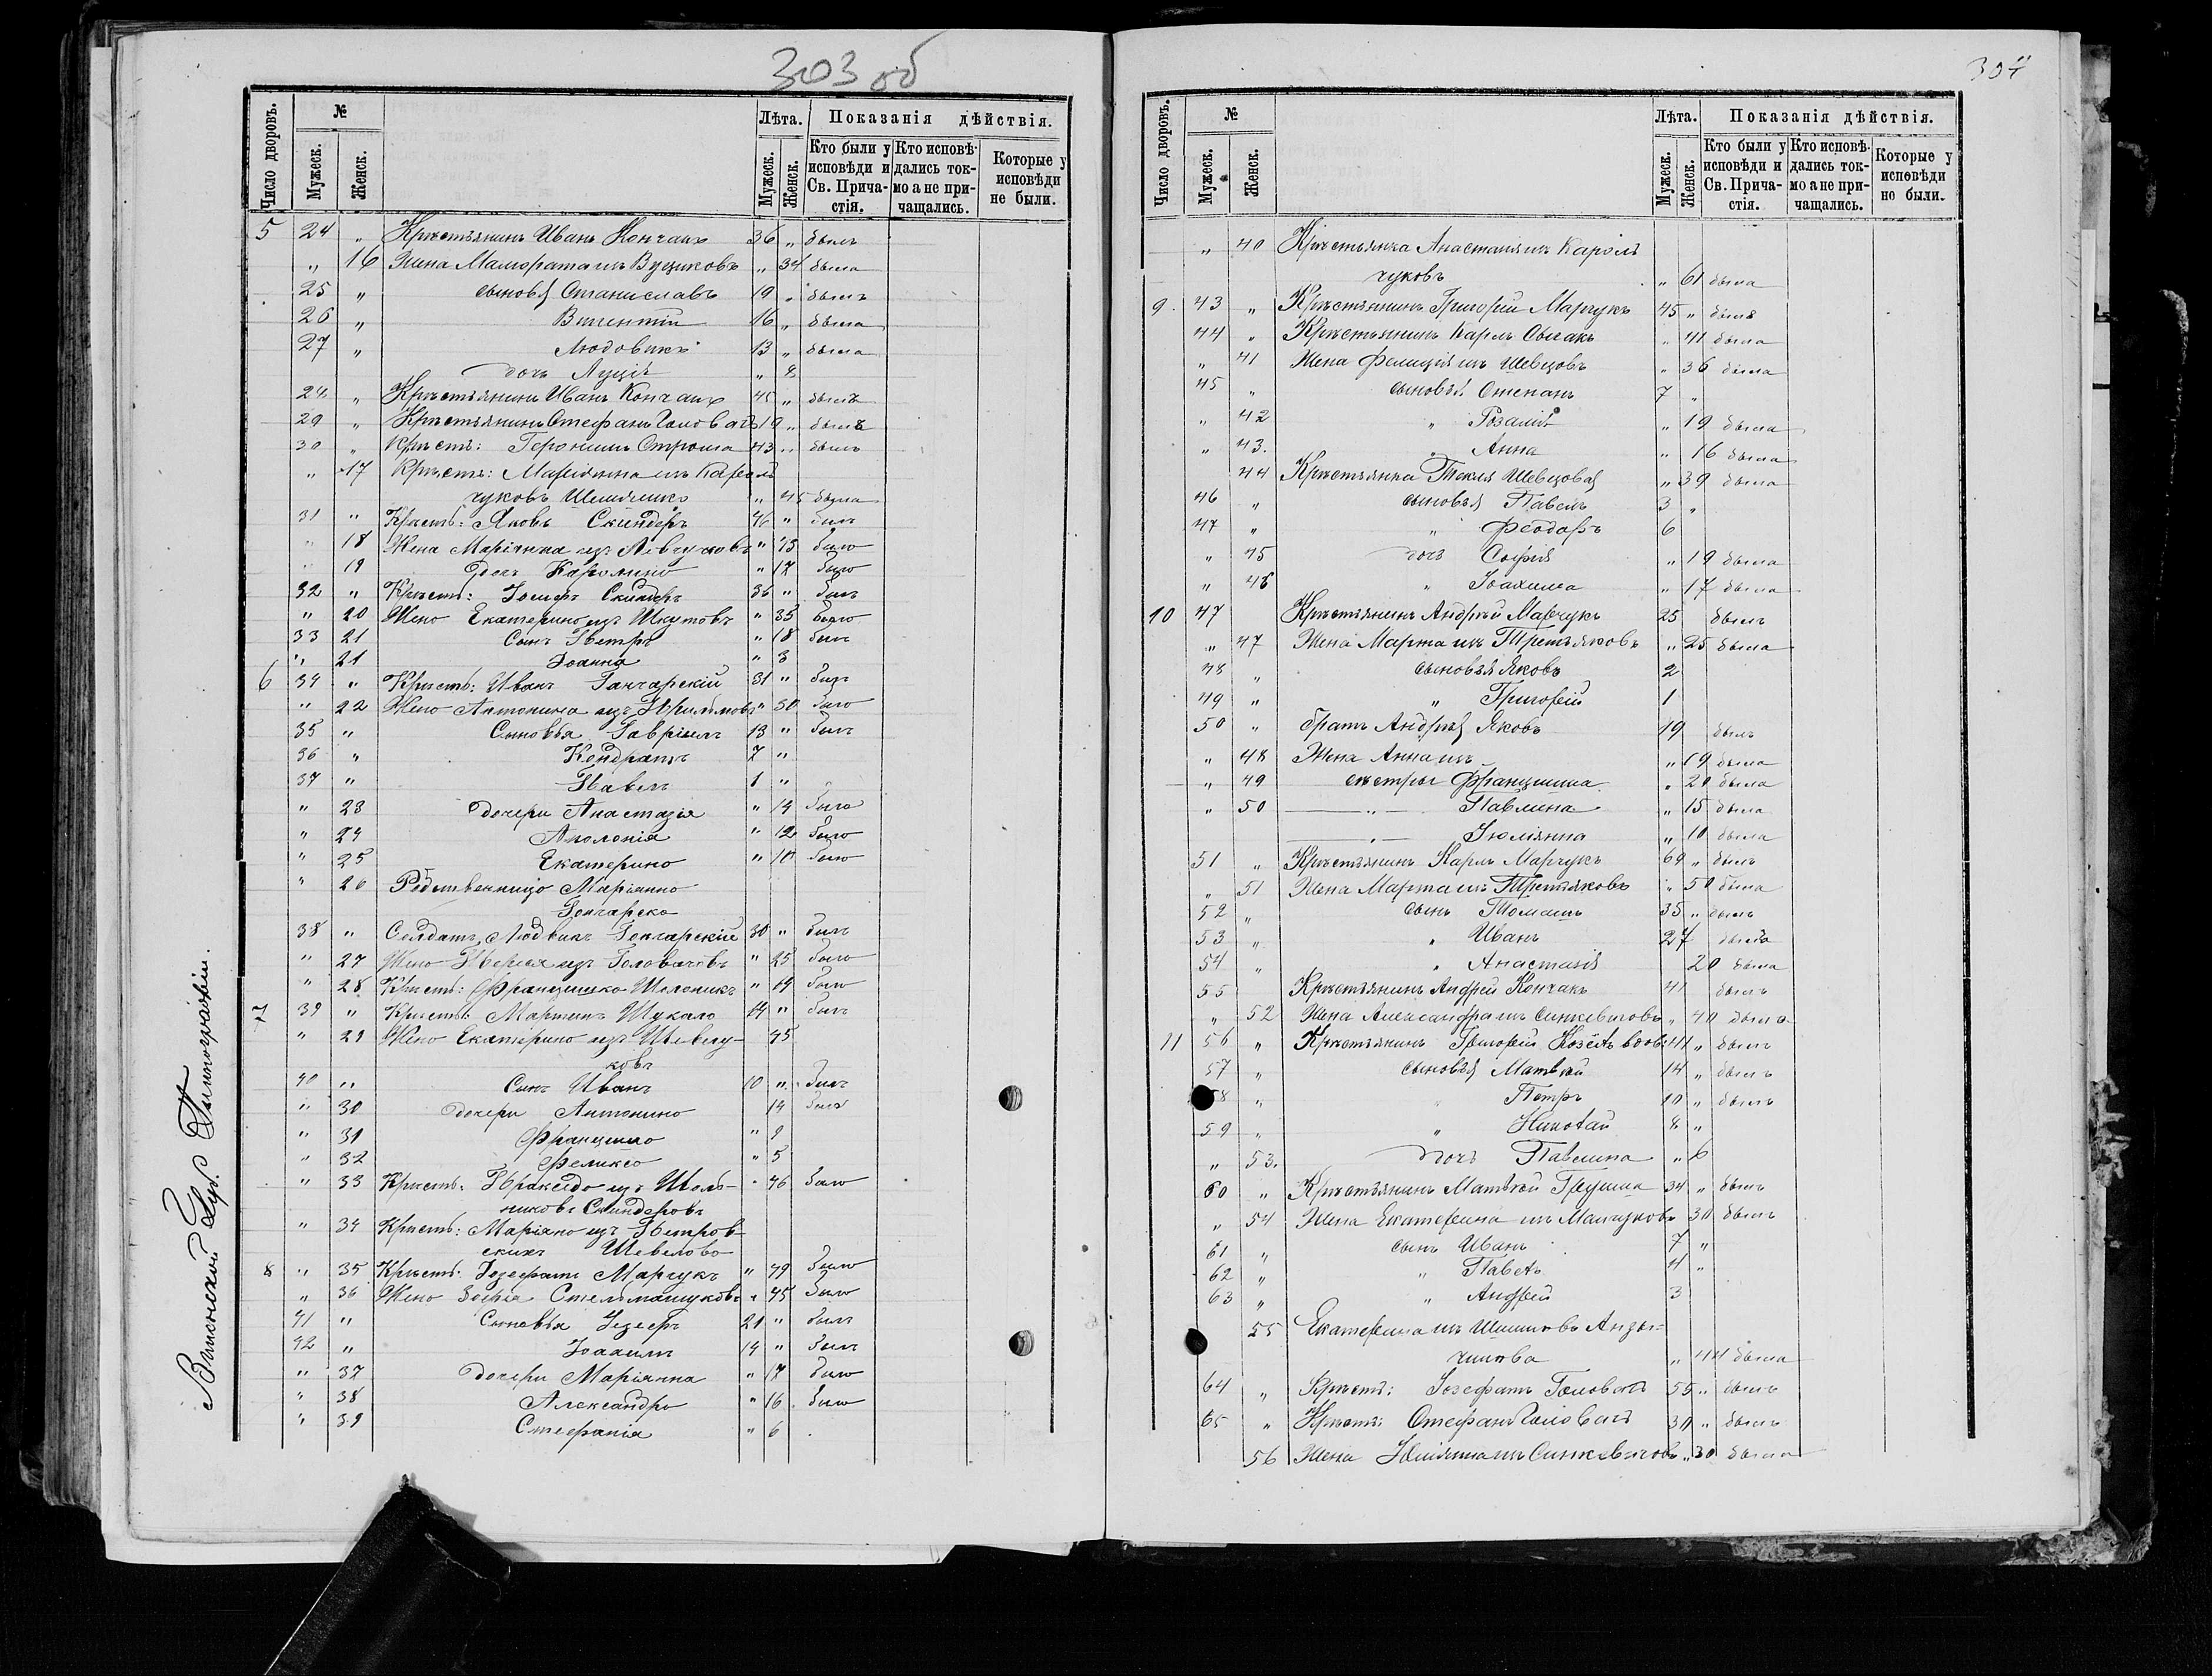 303 об
Число дворовъ. № Лѣта. Показанія дѣйствія.
Мужеск. Женск. Мужеск. Женск. Кто были у исповѣди и Св. Прича-стія. Кто исповѣ-дались ток-мо а не при-чащались. Которые у исповѣди не были.
5 24 „ Крестьянинъ Иванъ Кончакъ 36 „ былъ
„ 16 Жена Малгората изъ „ 34 была
25 „ сыновья Станиславъ 19 „ былъ
26 „ Викентій 16 „ была
27 „ Людовикъ 13 „ была
дочь Луція „ 8
24 „ Крестьянинъ Иванъ Кончакъ 45 „ былъ
29 „ Крестьянинъ Стефанъ Головачъ 19 „ былъ
30 „ Крестъ: Геронимъ Строма 43 „ былъ
„ 17 Крестъ: Маріянна изъ Кароль
чуковъ „ 45 была
31 „ Крестъ: Яковъ Скиндеръ 46 „ былъ
„ 18 Жена Маріянна изъ Левчуковъ „ 43 была
„ 19 дочь Каролина „ 17 была
32 „ Крестъ: Іосифъ Скиндеръ 36 „ былъ
„ 20 Жена Екатерина изъ Шкутовъ „ 33 была
33 21 Сынъ Петръ „ 18 былъ
„ 21 Іоанна „ 3
6 34 „ Крестъ: Иванъ Гончарскій 31 „ былъ
„ 22 Жена Антонина изъ „ 30 была
35 „ Сыновья Гавріилъ 13 „ былъ
36 „ Кондратъ 7 „
37 „ Павелъ 1 „
„ 23 дочери Анастазія „ 14 была
„ 24 Аполонія „ 12 была
„ 25 Екатерина „ 10 была
„ 26 Родственница Маріанна
Гончарска
38 „ Солдатъ Людвикъ Гончарскій 30 „ былъ
„ 27 Жена Тереса изъ Головачовъ „ 25 была
„ 28 Крестъ: Францишка „ 19 была
7 39 „ Крестъ: Мартинъ Шукало 44 „ былъ
„ 29 Жена Екатерина изъ Шевчу-
ковъ 45
40 „ Сынъ Иванъ 10 „ былъ
„ 30 дочери Антонина 14 была
„ 31 Францишка „ 9
„ 32 Феликса „ 5
„ 33 Крестъ: Пракседа изъ Школь-
никовъ Скиндеровъ „ 46 была
„ 34 Крестъ: Маріана изъ Петров-
скихъ Шевелова
8 „ 35 Крестъ: Іозефатъ Марчукъ „ 49 была
„ 36 Жена Зофія Стельмащуковъ „ 45 была
41 „ Сыновья Іезефъ 21 „ былъ
42 „ Іоахимъ 19 „ былъ
„ 37 дочери Маріянна „ 17 была
„ 38 Александра „ 16 была
„ 39 Стефанія „ 6
Виленской Губ. Типографіи.
304
Число дворовъ. № Лѣта. Показанія дѣйствія.
Мужеск. Женск. Мужеск. Женск. Кто были у исповѣди и Св. Прича-стія. Кто исповѣ-дались ток-мо а не при-чащались. Которые у исповѣди не были.
„ 40 Крестьянка Анастазія изъ Кароль
чуковъ „ 61 была
9. 43 „ Крестьянинъ Григорій Марчукъ 45 „ былъ
44 „ Крестьянинъ Карлъ „ 41 была
„ 41 Жена Фелиція изъ Шевцовъ „ 36 была
45 „ сыновья Степанъ 7 „
„ 42 „ Розалія „ 19 была
„ 43. „ Анна „ 16 была
44 Крестьянка Текля Шевцова „ 39 была
46 „ сыновья Павелъ 3 „
47 „ „ Феодоръ 6
„ 45 дочь Софія „ 19 была
„ 46 „ Іоахима „ 17 была
10 47 Крестьянинъ Андрей Марчукъ 25 былъ
„ 47 Жена Марта изъ Третьяковъ „ 25 была
48 „ сыновья Яковъ 2
49 „ „ Григорій 1
50 „ братъ Андрея Яковъ 19 былъ
„ 48 Жена Анна изъ „ 19 была
„ 49 сестры Францишка „ 20 была
„ 50 „ Павлина „ 15 была
„ Юліянна „ 10 была
51 „ Крестьянинъ Карлъ Марчукъ 69 „ былъ
„ 51 Жена Марта изъ Третьяковъ „ 50 была
52 „ сынъ Томашъ 35 „ былъ
53 „ „ Иванъ 27 была
54 „ „ Анастазія 20 была
55 Крестьянинъ Андрей Кончакъ 41 былъ
„ 52 Жена Александра изъ Синкевичовъ „ 40 была
11 56 „ Крестьянинъ Григорій Козелъ вдов: 41 „ былъ
57 „ сыновья Матвей 14 „ былъ
58 „ „ Петръ 10 „ былъ
59 „ „ Николай 8 „
„ 53. дочь Павлина „ 6
60 „ Крестьянинъ Матвей Груша 34 „ былъ
„ 54 Жена Екатерина изъ 30 былъ
61 „ сынъ Иванъ 7 „
62 „ „ Павелъ 4 „
63 „ „ Андрей 3
55 Екатерина изъ
„ 44 была
64 „ Крестъ: Іозефатъ Головачъ 55 „ былъ
65 „ Крестъ: Стефанъ Головачъ 30 „ былъ
56 Жена Юліянна изъ Синкевичовъ „ 30 была